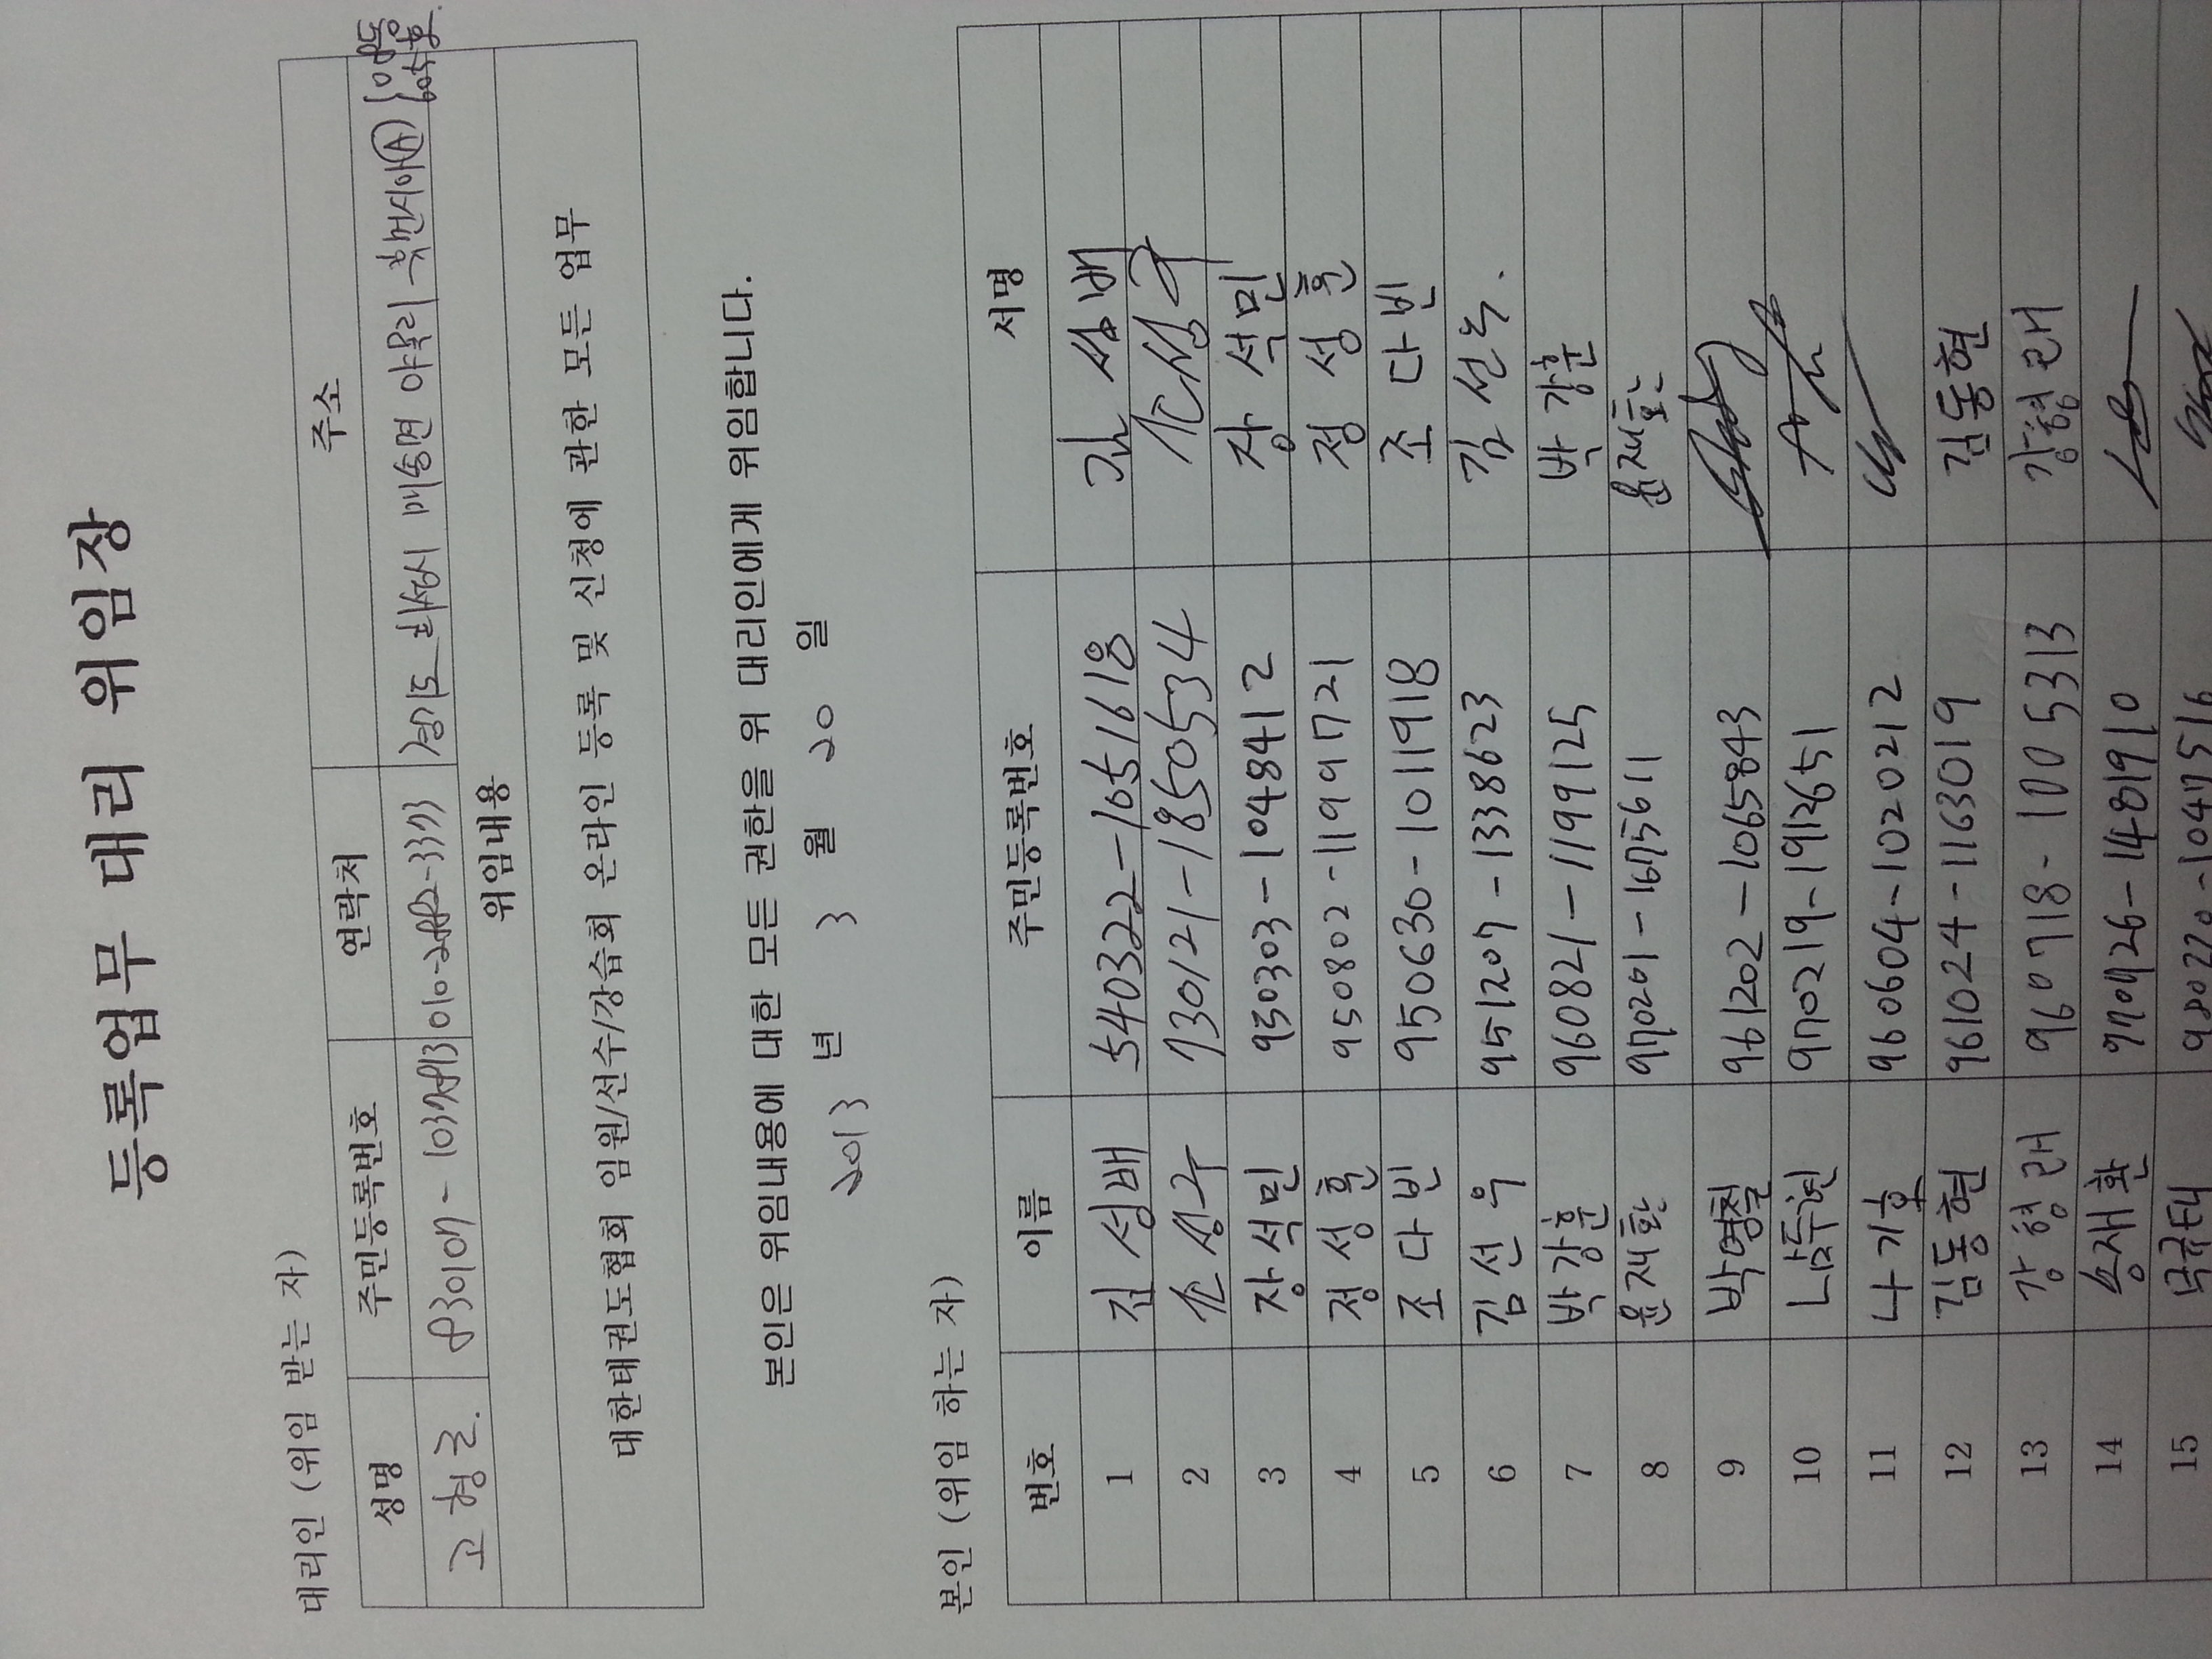 등록업무 대리 위임장
대리인 (위임 받는 자)
성명 주민등록번호 연락처 주소
고형근. 830107 - 경기도 화성시 매송면 야목리 105동 605호
위임내용
대한태권도협회 임원/선수/강습회 온라인 등록 및 신청에 관한 모든 업무
본인은 위임내용에 대한 모든 권한을 위 대리인에게 위임합니다.
2013 년 3 월 20 일
본인 (위임 하는 자)
번호 이름 주민등록번호 서명
1 김성배 540322-1051618 김성배
2 조성구 730121-1850534 조성구
3 장석민 930303-1048412 장석민
4 정성훈 950802-1199721 정성훈
5 조다빈 950630-1011918 조다빈
6 김선우 951207-1338623 김선우.
7 박강훈 960821-1199125 박강훈
8 윤재환 970201-1675611 윤재환
9 박명철 961202-1065843
10 남두현 970219-1912651
11 나기호 960604-1020212
12 김동현 961024-1163019 김동현
13 강형래 960718-1005313 강형래
14 송재환 970426-1481910
15 980220-1047516